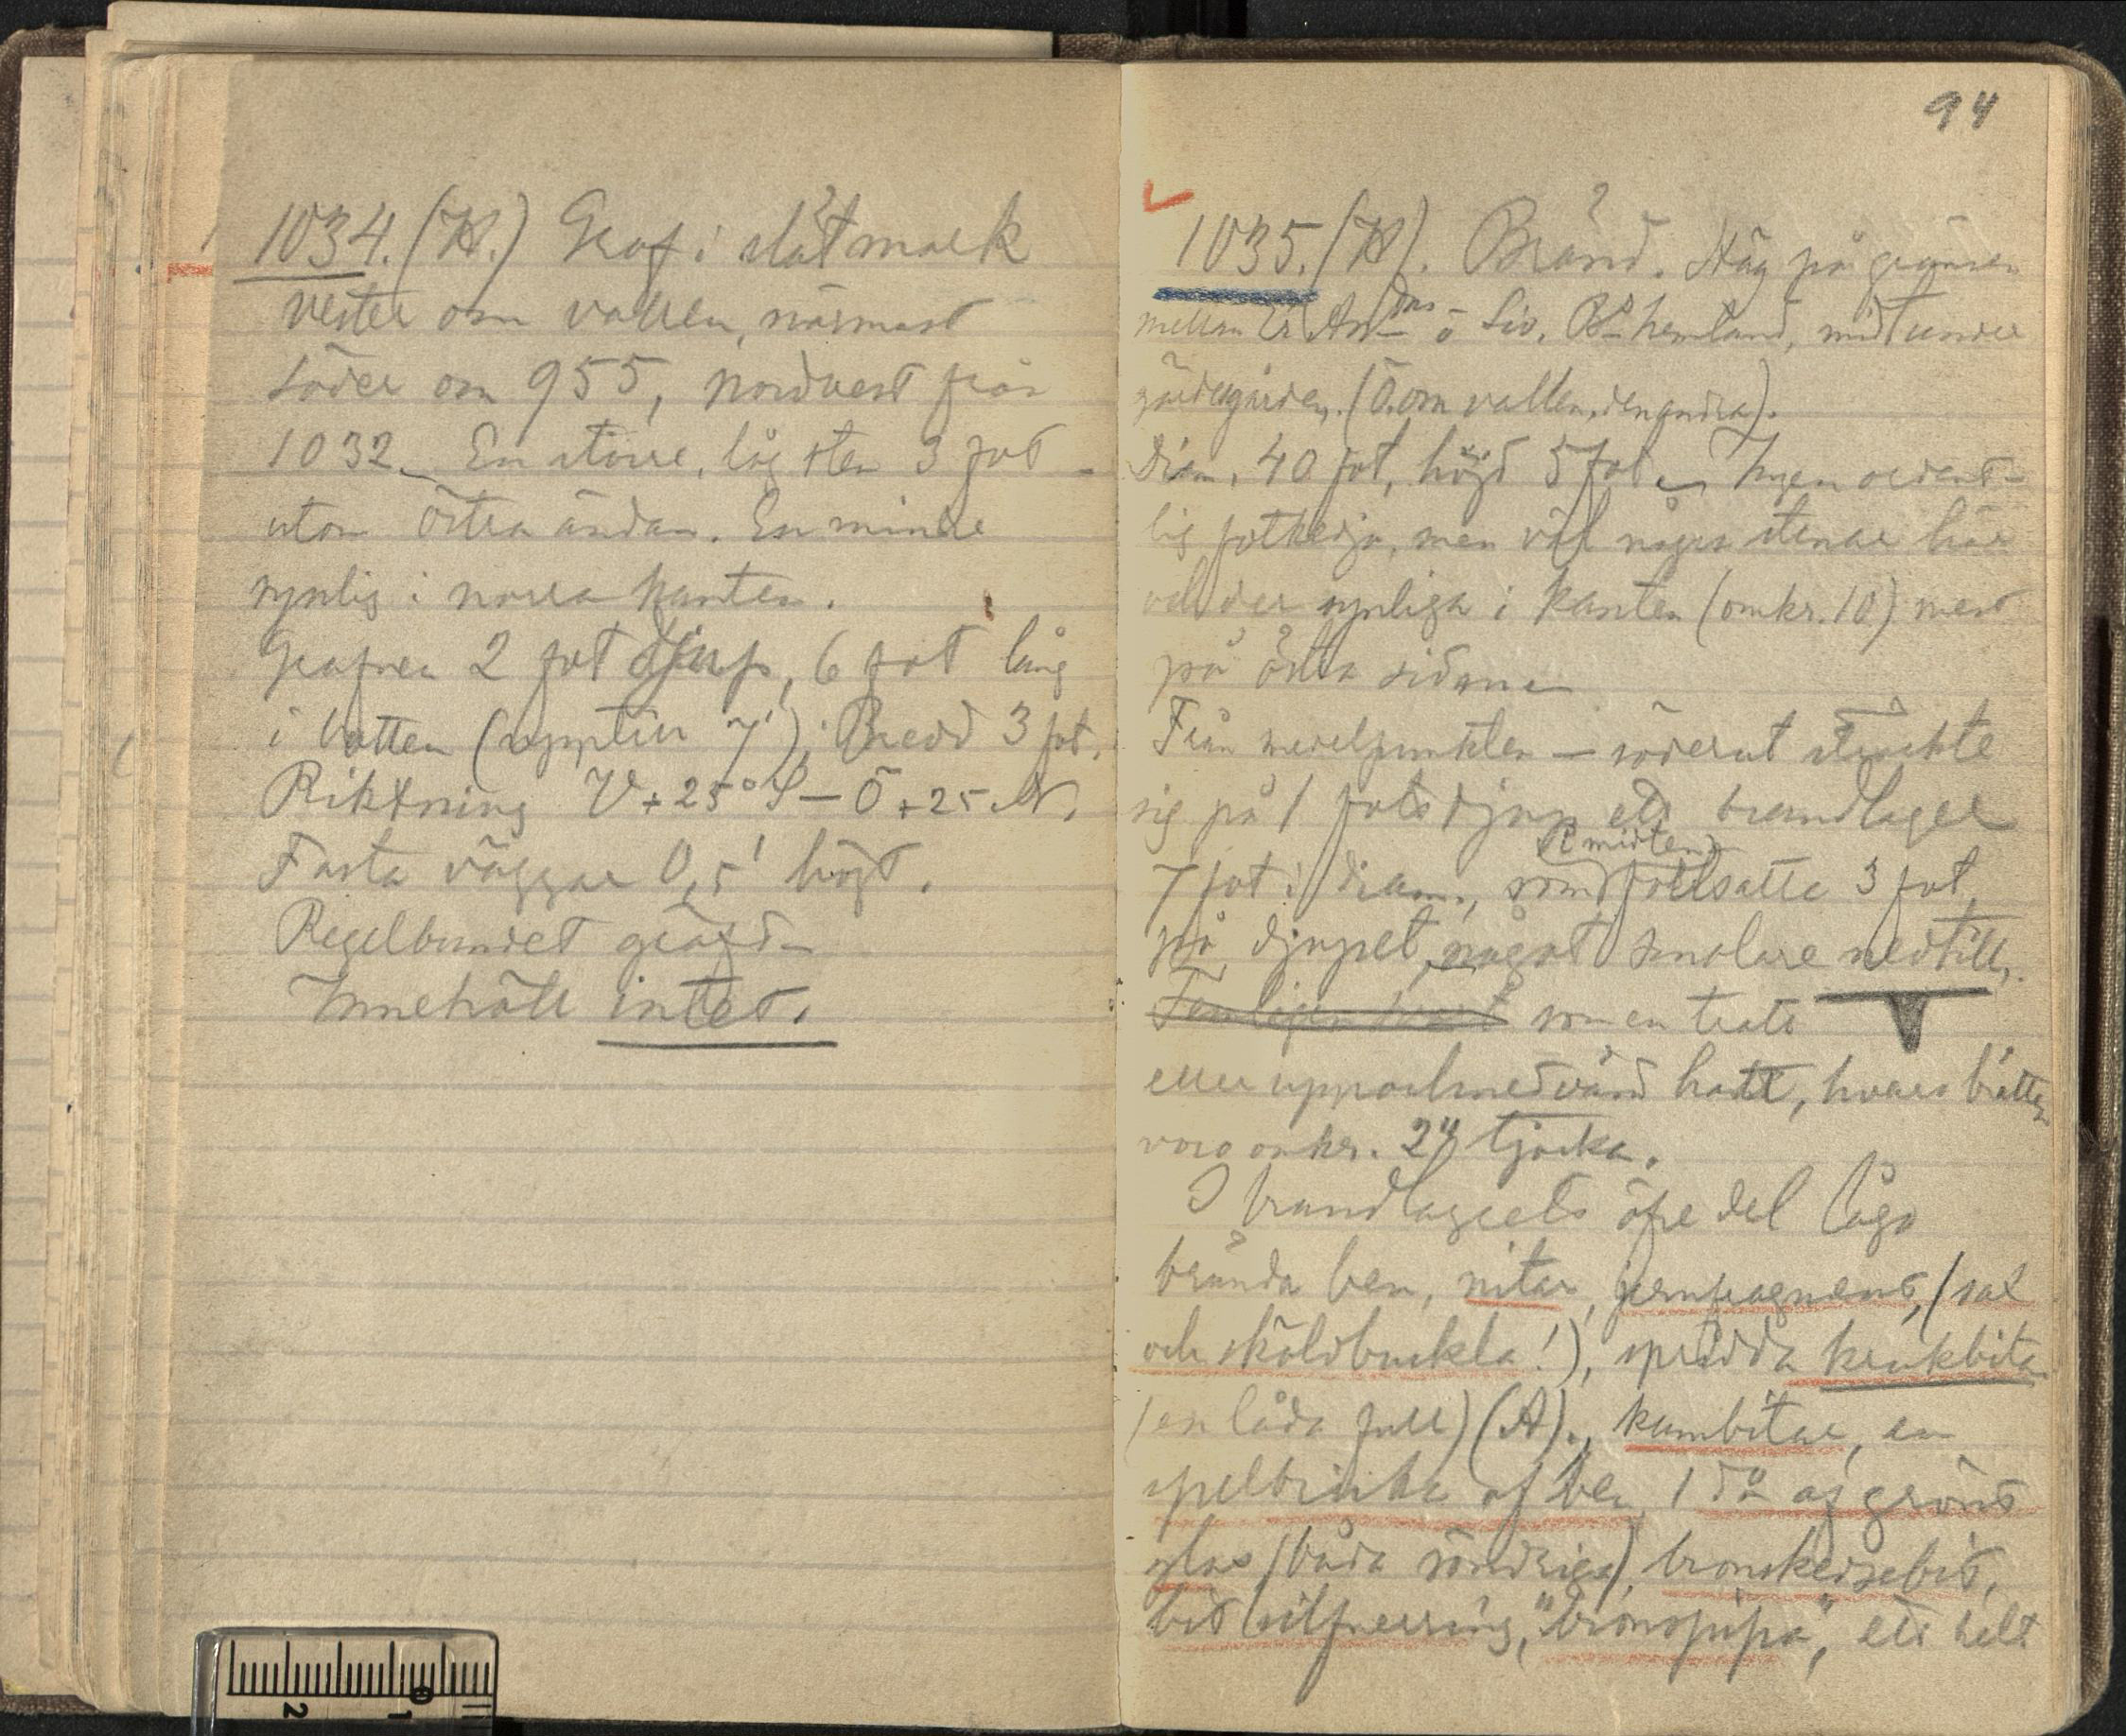 1034. (H.) Graf i slät mark
vester om vallen, närmast
söder om 955, nordvest från
1032. En större, låg sten 3 fot
utom östra ändan. En mindre
synlig i norra kanten.
Grafven 2 fot djup, 6 fot lång
i botten (upptill 7'); Bredd 3 fot.
Riktning V + 25° S – Ö + 25 N.
Fasta väggar 0,5' högt.
Regelbundet gräfd –
Innehöll intet.
94
1035. (H). Bränd. Hög på gränsen
mellan Er. And:ns o Liv. B:s hemland, midt under
gärdesgården. (Ö. om vallen, den andra).
Diam. 40 fot, höjd 5 fot. Ingen ordent-
lig fotkedja, men väl några stenar här
och der synliga i kanten (omkr. 10) mest
på östra sidan.
Från medelpunkten – söderut sträckte
sig på 1 fots djup ett brandlager
i midten
7 fot i diam., som fortsatte 3 fot
på djupet, något smalare nedtill,
som en tratt
eller uppochnedvänd hatt, hvars brätten
voro omkr. 2" tjocka.
I brandlagrets öfre del lågo
brända ben, nitar, jernfragment, (sax
och sköldbuckla!), spridda krukbitar
(en låda full) (A)., kambitar, en
spelbricka af ben, 1 d:o af grönt
glas (båda söndriga), bronskedjebit,
bit silfverring, "bronspipa", ett helt